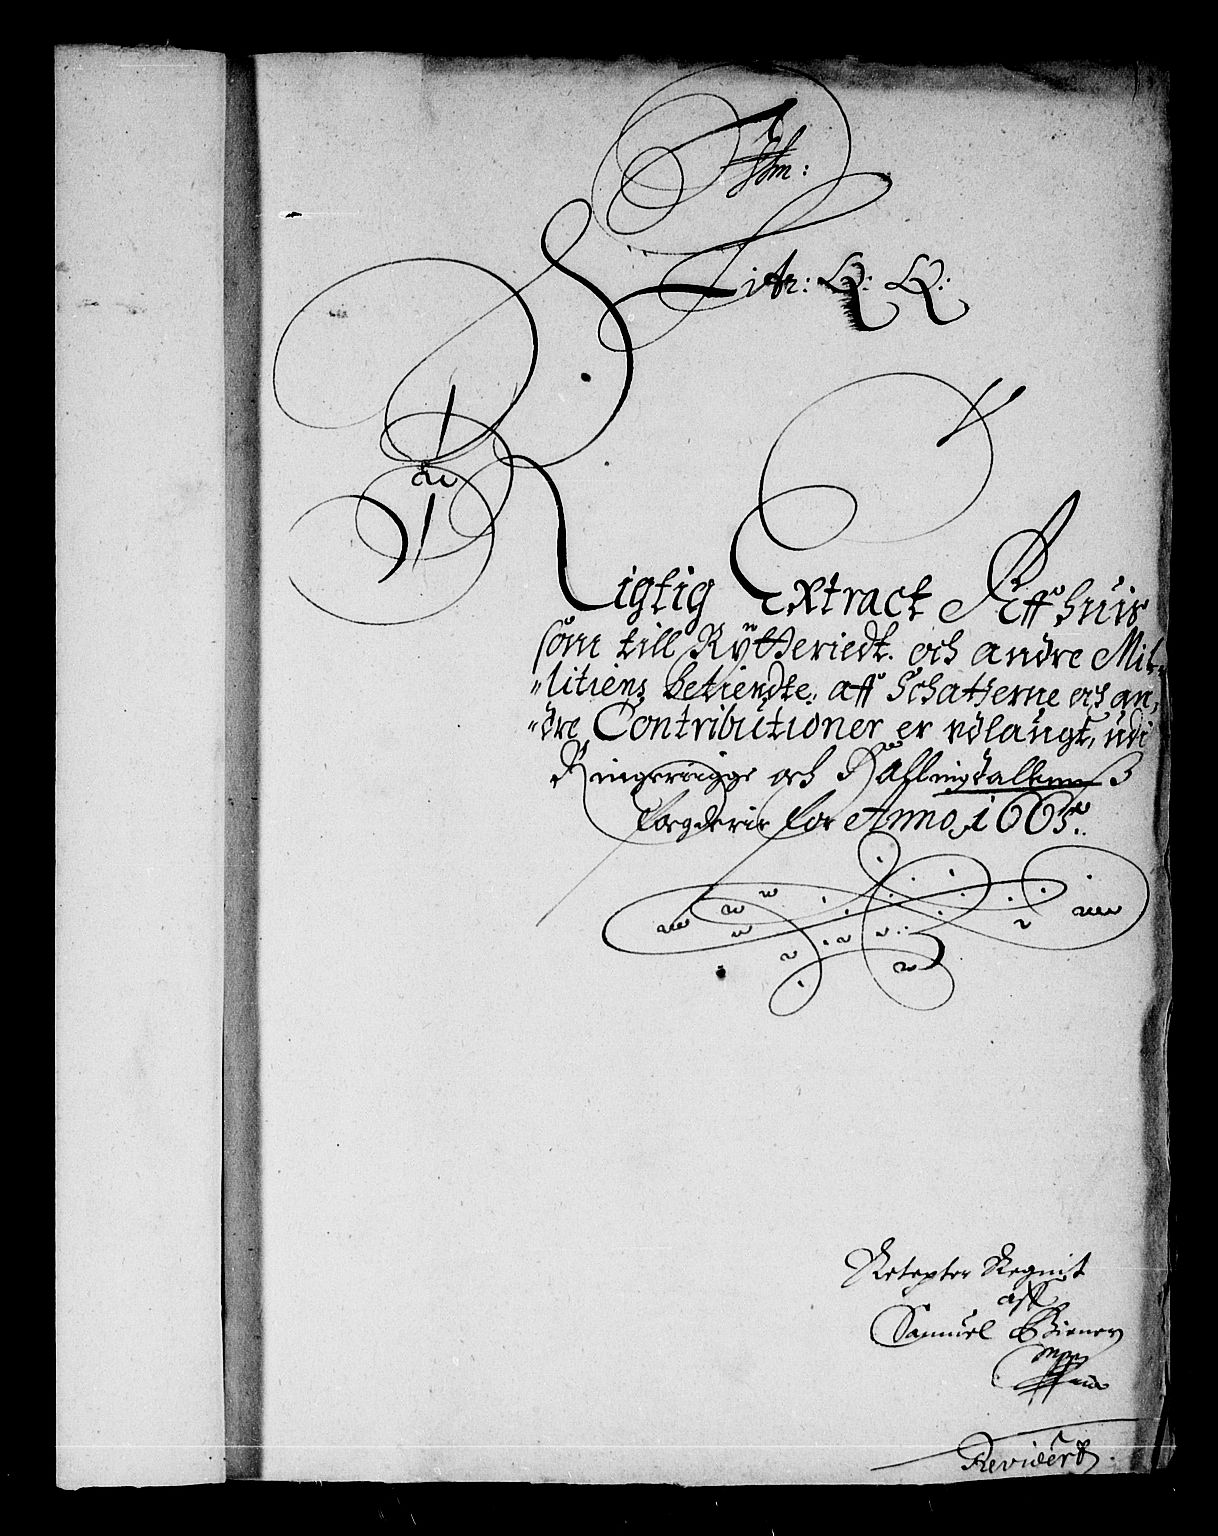 Litr: Q: Q:
Rigtig Extract Aff huis
som till Rytteriedt. och andre Mil-
"litiens betiendte. aff Schatterne och an,
"dre Contributioner er udlaugt, udi
Ringeriigge och Hallingdallens
fogderie for Anno 1665.
Regnit
aff
Samuel
mpp
Reviderit